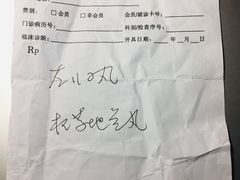 费别: □会员 □非会员 会员/就诊卡号:
门诊病历号: 科别/检查序号:
临床诊断: 开具日期: 年 月 日
Rp
左归丸
杞菊地黄丸